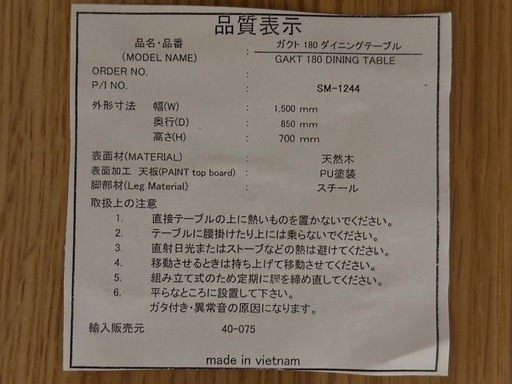 品質表示
品名・品番 : ガクト 180 ダイニングテーブル
(MODEL NAME) GAKT 180 DINING TABLE
ORDER NO. :
P/I NO. : SM-1244
外形寸法 幅(W) : 1,500 mm
奥行(D) : 850 mm
高さ(H) : 700 mm
表面材(MATERIAL) : 天然木
表面加工 天板(PAINT top board) : PU塗装
脚部材(Leg Material) : スチール
取扱上の注意
1. 直接テーブルの上に熱いものを置かないでください。
2. テーブルに腰掛けたり上には乗らないでください。
3. 直射日光またはストーブなどの熱は避けてください。
4. 移動させるときは持ち上げて移動させてください。
5. 組み立て式のため定期に脚を締め直してください。
6. 平らなところに設置して下さい。
ガタ付き・異常音の原因になります。
輸入販売元 40-075
made in vietnam